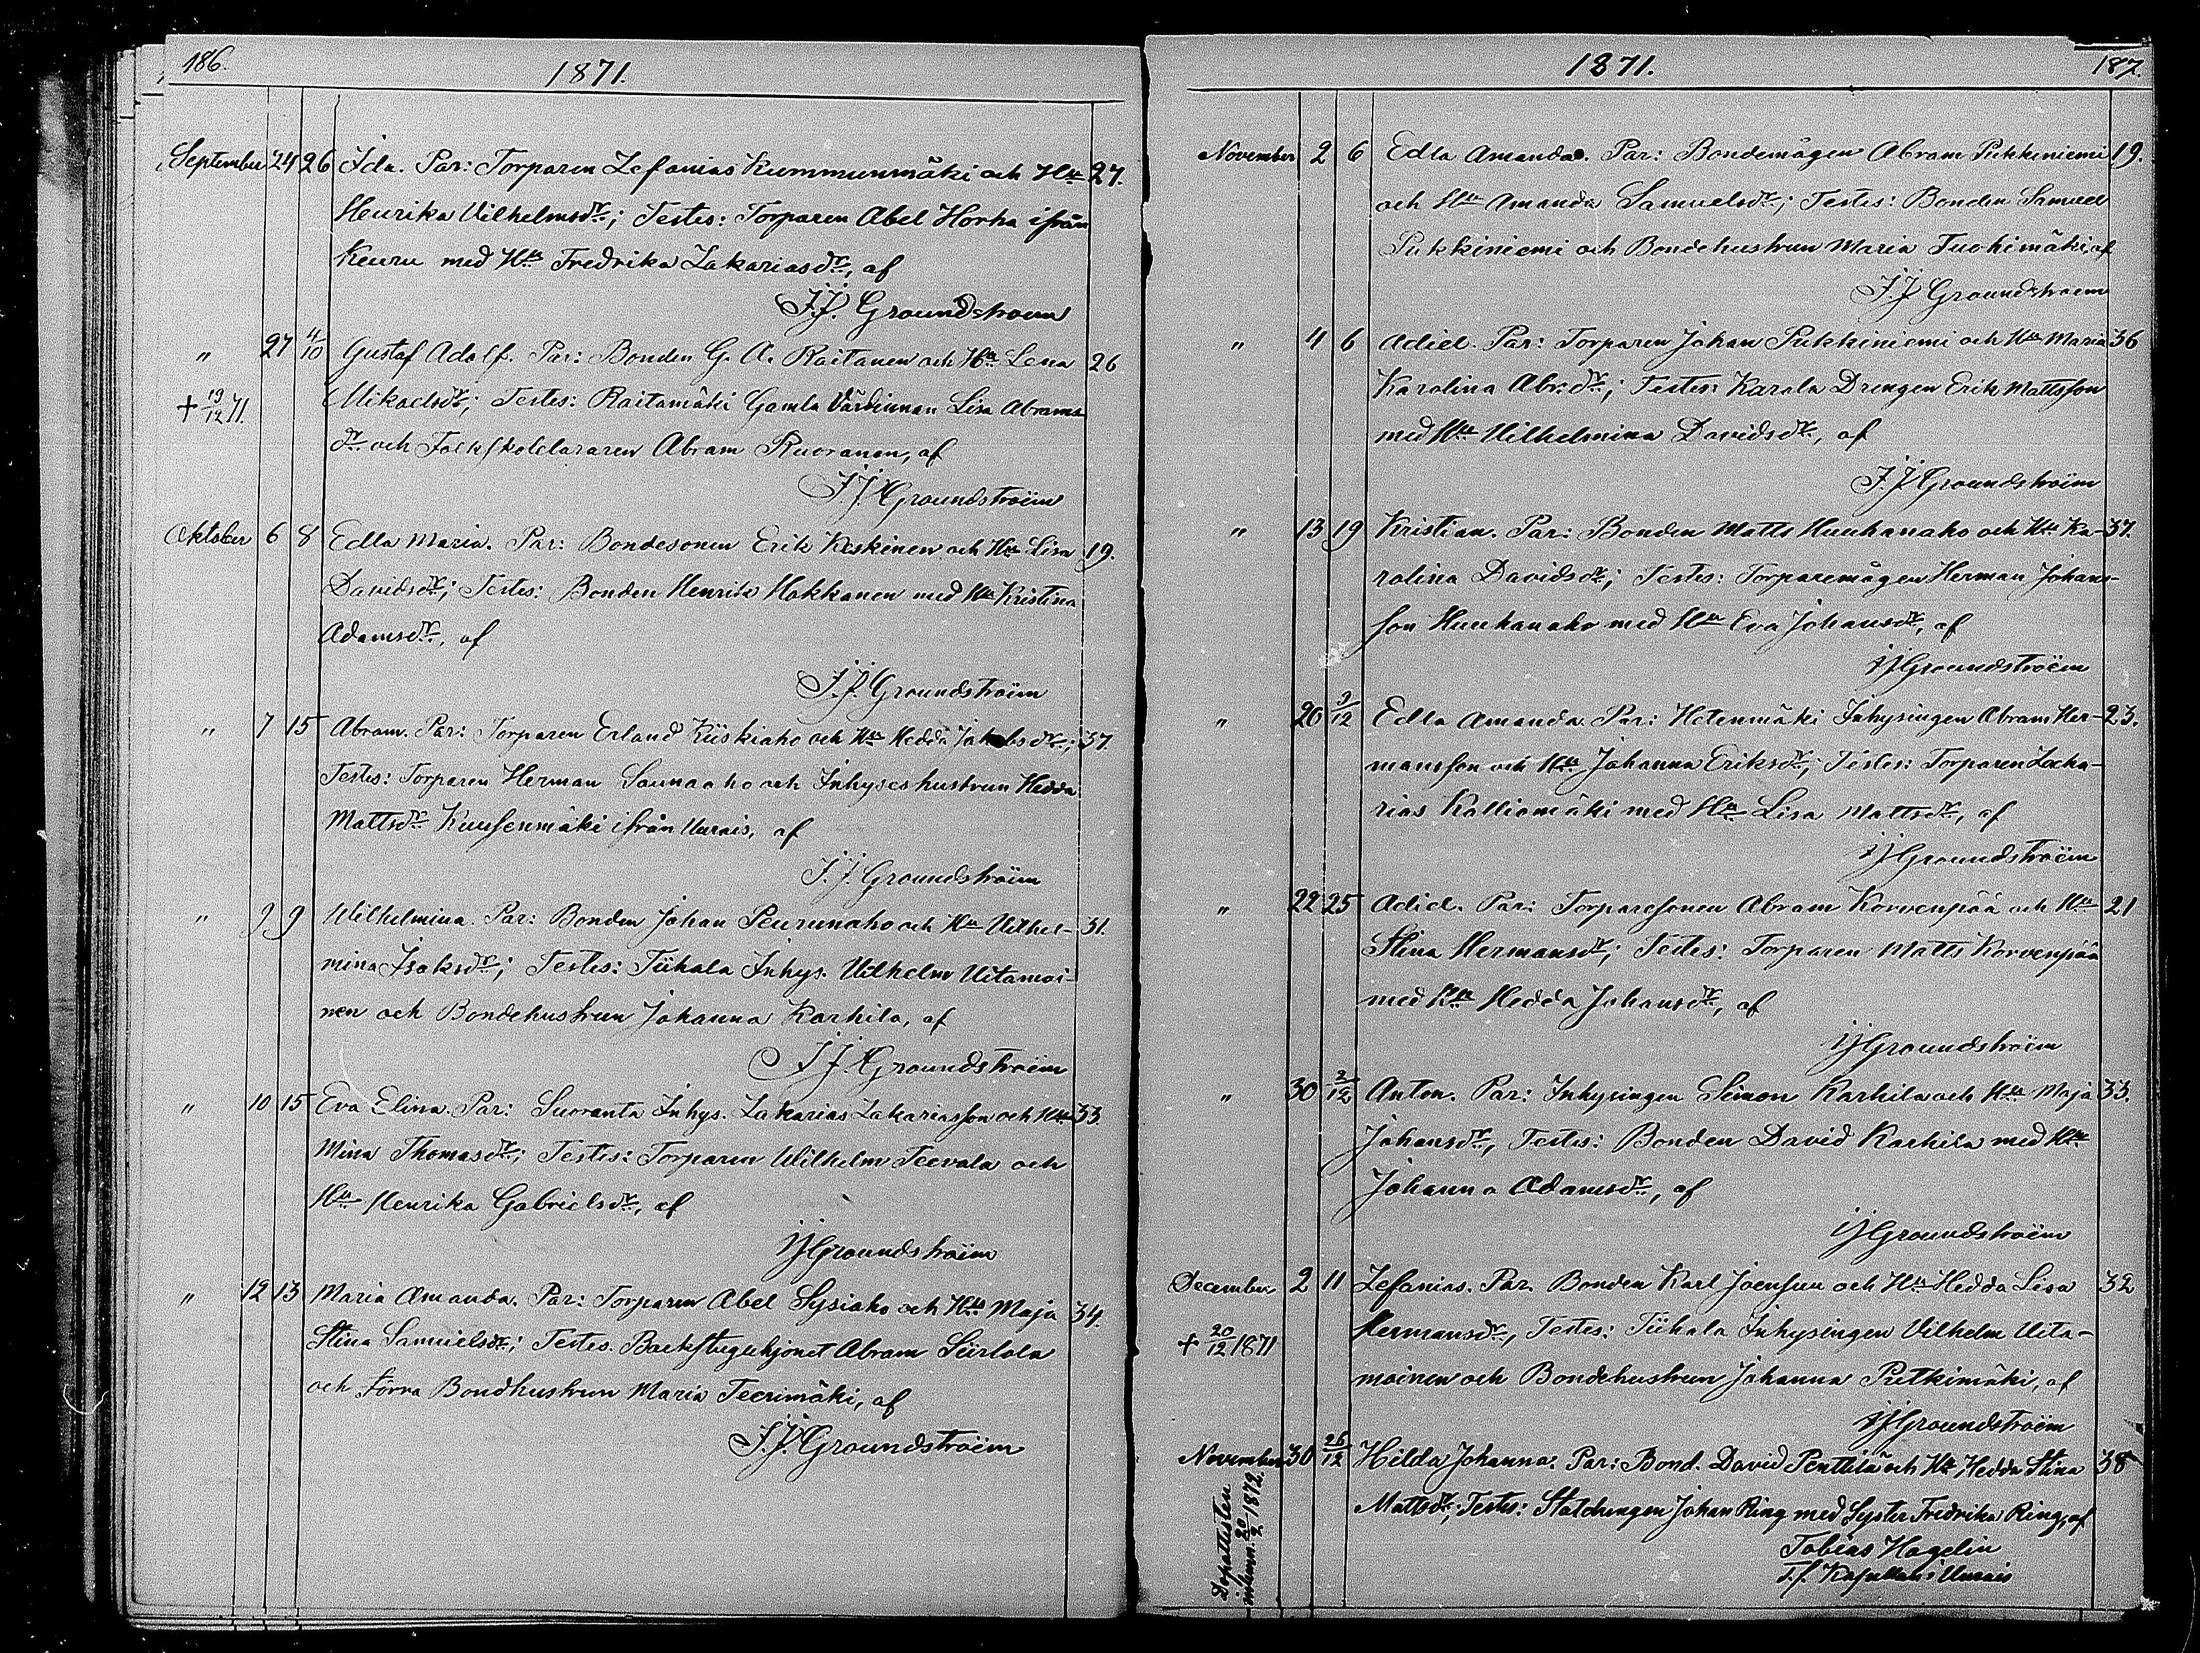 186.
1871.
September 24 26 Ida. Par: Torparen Zefanias Kummunmäki och Hu 27.
Henrika Vilhelmsdr; Testes: Torparen Abel Horha ifrån
Keuru med Hu Fredrika Zakariasdr, af
J.J. Groundstroem
" 27 4/10 Gustaf Adolf. Par: Bonden G. A. Raitanen och Hu Lena 26
+ 19/12 71. Mikaelsdr; Testes: Raitamäki Gamla Värdinnan Lisa Abrams
dr och Folkskoleläraren Abram Ruoranen, af
J.J. Groundströem
Oktober 6 8 Edla Maria. Par: Bondesonen Erik Keskinen och Hu Lisa 19.
Davidsdr; Testes: Bonden Henrik Hakkanen med Hu Kristina
Adamsdr, af
J.J. Groundströem
" 7 15 Abram. Par: Torparen Erland Kiiskiaho och Hu Hedda Jakobsdr; 37.
Testes: Torparen Herman Saunaaho och Inhyseshustrun Hedda
Mattsdr Kuusenmäki ifrån Uurais, af
J.J. Groundströem
" 9 9 Wilhelmina. Par: Bonden Johan Peurunaho och Hu Vilhel- 31.
mina Isaksdr; Testes: Tiihala Inhys. Vilhelm Uitamoi-
nen och Bondehustrun Johanna Karhila, af
J.J. Groundströem
" 10 15 Eva Elina. Par: Suoranta Inhys. Zakarias Zakariasson och Hu 33.
Mina Thomasdr; Testes: Torparen Wilhelm Teevala och
Hu Henrika Gabrielsdr, af
JJGroundströem
" 12 13 Maria Amanda. Par: Torparen Abel Sysiaho och Hu Maja 34.
Stina Samuelsdr; Testes. Backstuguhjonet Abram Siirlola
och förra Bondhustrun Maria Teerimäki, af
J.J. Groundströem
1871.
187.
November 2 6 Edla Amanda. Par: Bondemågen Abram Pukkiniemi 19.
och Hu Amanda Samuelsdr; Testes: Bonden Samuel
Pukkiniemi och Bondehustrun Maria Tuohimäki, af
J.J Groundstroem
" 4 6 Adiel. Par: Torparen Johan Pukkiniemi och Hu Maria 36
Karolina Abr:dr; Testes: Karala Drengen Erik Mattsson
med Hu Vilhelmina Davidsdr, af
J.J Groundströem
" 13 19 Kristian. Par: Bonden Matts Huuhanaho och Hu Ka- 37.
rolina Davidsdr; Testes: Torparemågen Herman Johans-
son Huuhanaho med Hu Eva Johansdr, af
JJGroundströem
" 20 3/12 Edla Amanda. Par: Hetenmäki Inhysingen Abram Her- 23.
mansson och Hu Johanna Eriksdr; Testes: Torparen Zacha-
rias Kalliomäki med Hu Lisa Mattsdr, af
JJGroundströem
" 22 25 Adiel. Par: Torparesonen Abram Korvenpää och Hu 21
Stina Hermansdr; Testes: Torparen Matts Korvenpää
med Hu Hedda Johansdr, af
JJGroundströem
" 30 2/12 Anton. Par: Inhysingen Simon Karhila och Hu Maja 33.
Johansdr, Testes: Bonden David Karhila med Hu
Johanna Adamsdr, af
JJGroundströem
December 2 11 Zefanias. Par. Bonden Karl Joensuu och Hu Hedda Lisa 32
+ 20/12 1871 Hermansdr, Testes: Tiihala Inhysingen Vilhelm Uita-
moinen och Bondehustrun Johanna Putkimäki, af
JJGroundströem
November 30 26/12 Hilda Johanna. Par: Bond. David Penttilä och Hu Hedda Stina 38
Mattsdr; Testes: Statdrengen Johan Ring med Syster Fredrika Ring, af
Tobias Hagelin
T.f. Kapellan i Uurais
Dopattesten
inlemn. 20/2 1872.